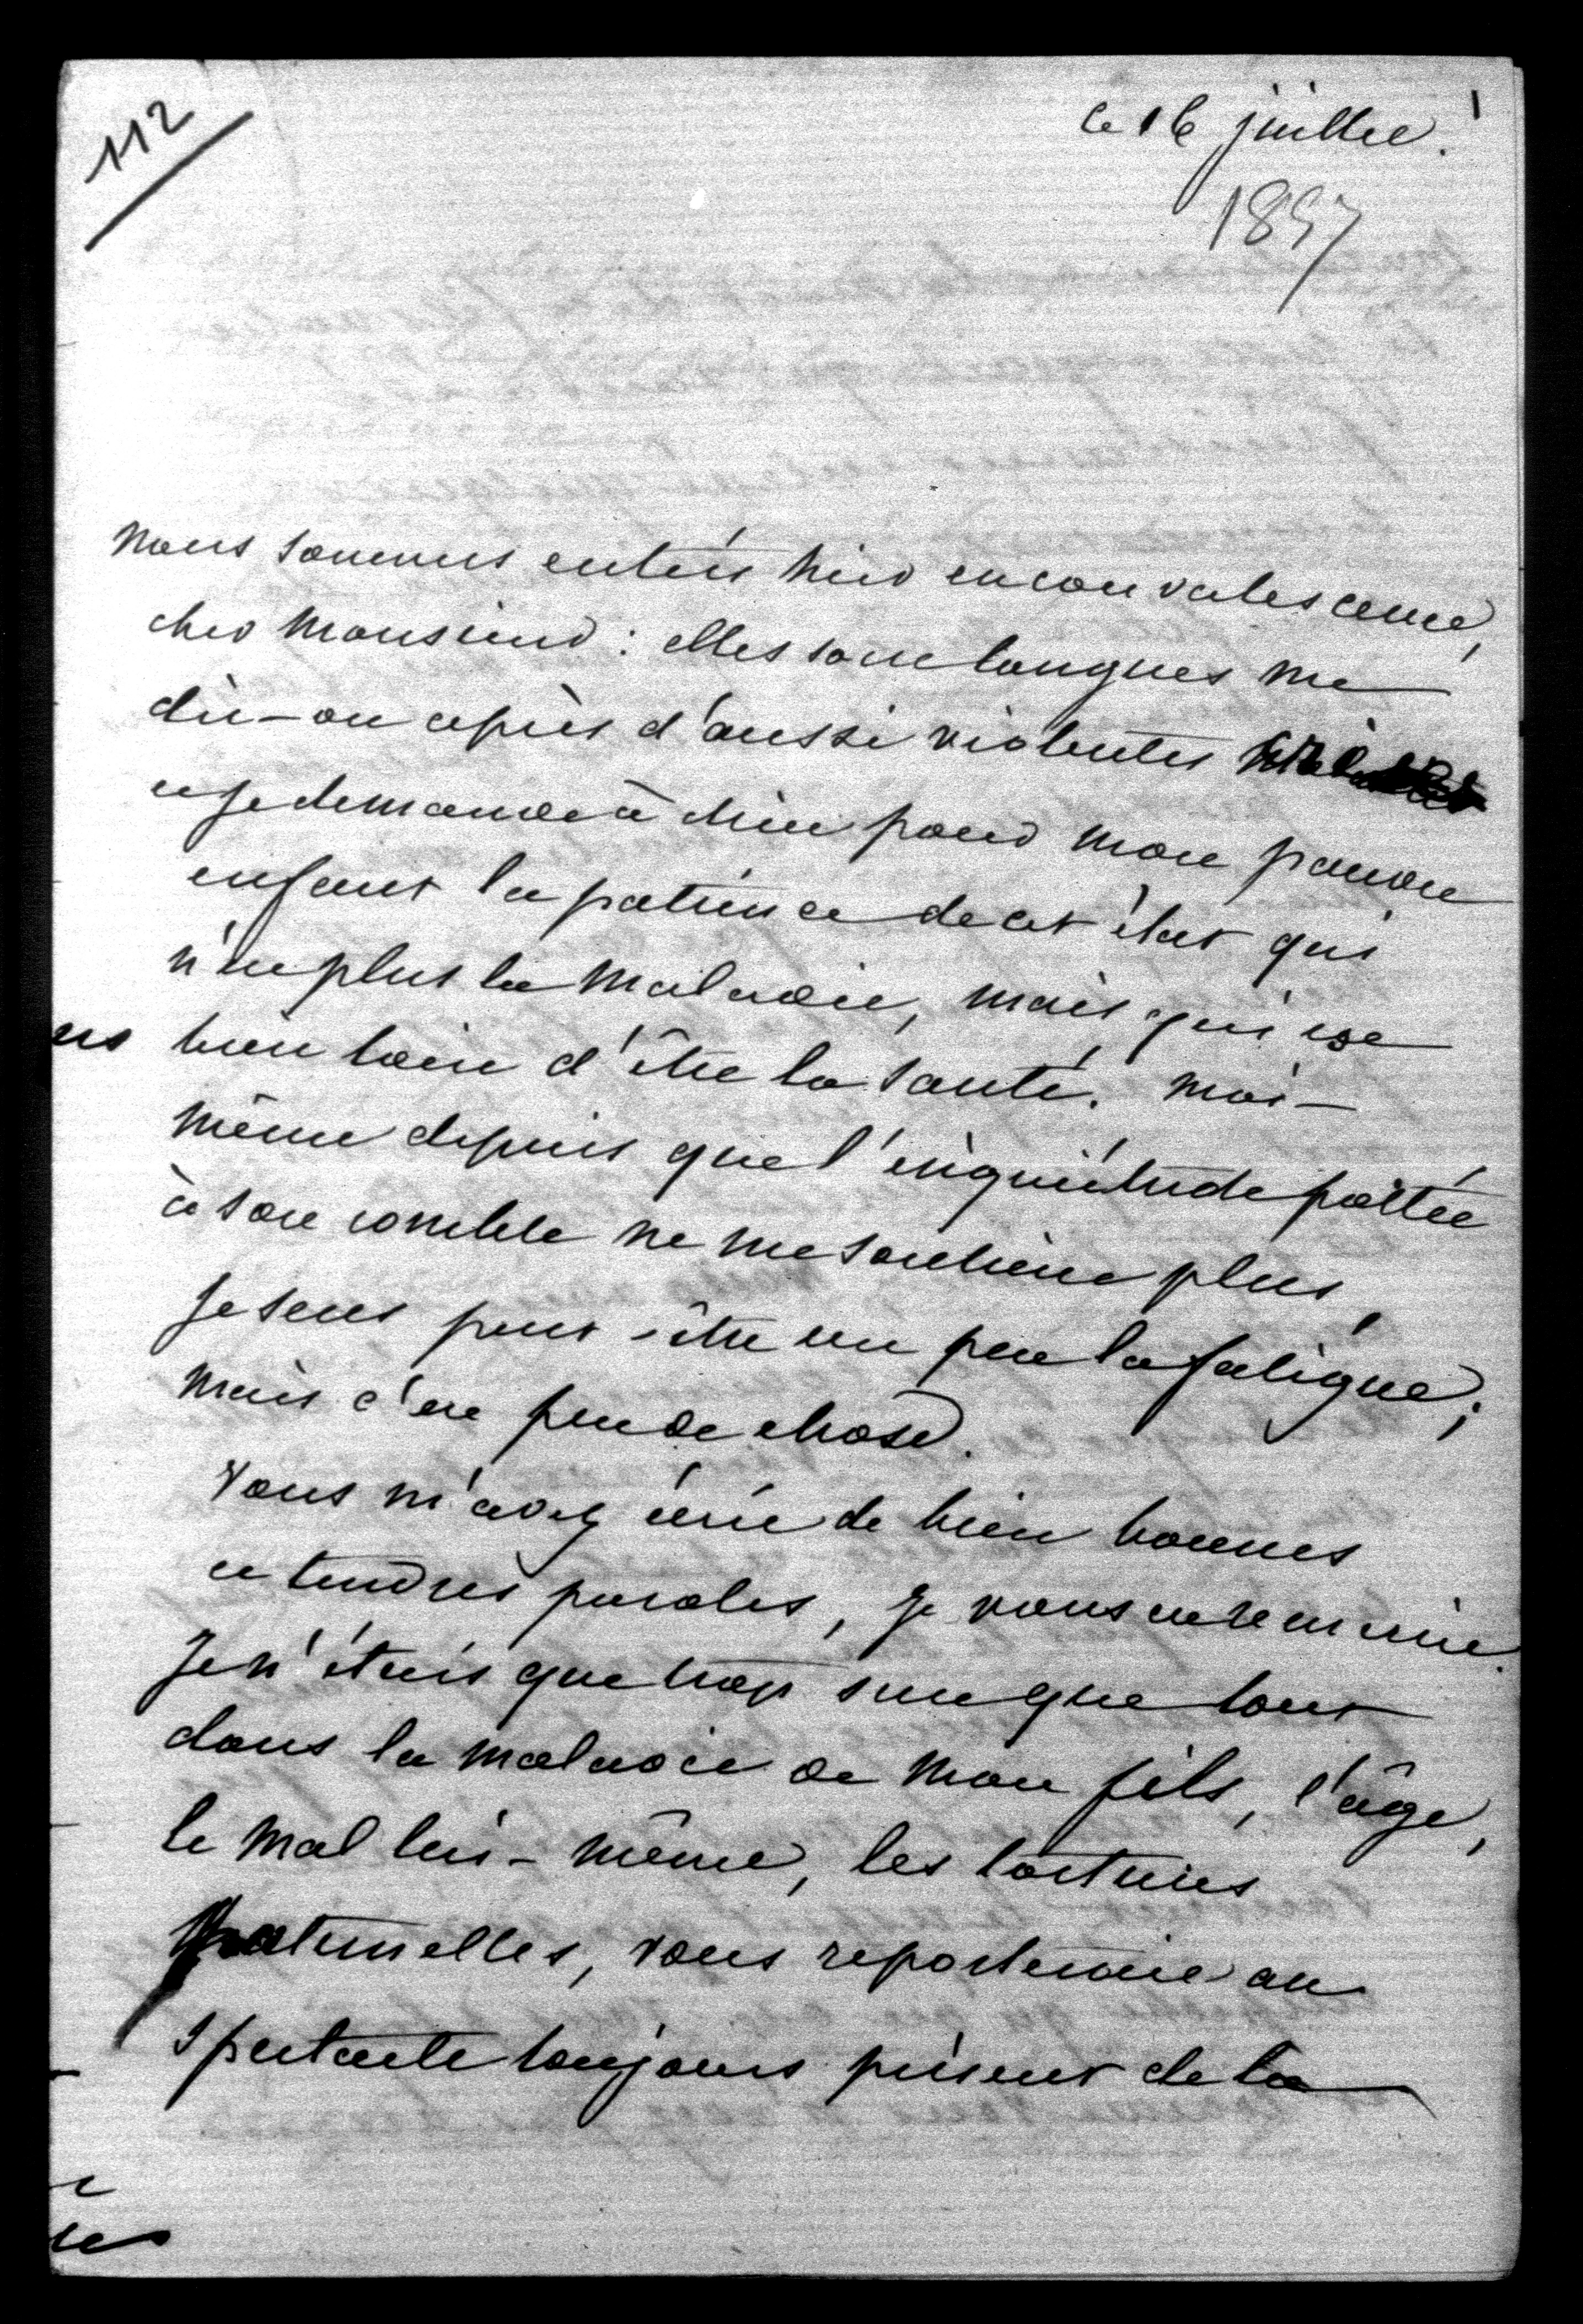 112
Ce 16 juillet.
1857
Nous sommes entrés hier en convalescence,
cher Monsieur : elles sont longues me
dit-on après d'aussi violentes
et je demande à Dieu pour mon pauvre
enfant la patience de cet état qui
n'est plus la maladie, mais qui est
bien loin d'être la santé. Moi-
même depuis que l'inquiétude portée
à son comble ne me soutient plus,
je sens peut-être un peu la fatigue ;
mais c'est peu de chose.
Vous m'avez écrit de bien bonnes
et tendres paroles, je vous en remercie.
Je n'étais que trop sure que tout
dans la maladie de mon fils, l'âge,
le mal lui-même, les tortures
maternelles, vous reporteraient au
spectacle toujours présent de la